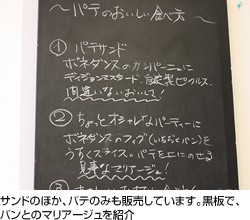 〜パテのおいしい食べ方〜
① パテサンド
ボネダンスのカンパーニュに
ディジョンマスタード、自家製ピクルス、
間違いないおいしさ!
② ちょっとオシャレなパーティーに
ボネダンスのフィグ(いちぢくパン)を
うすくスライス。パテを上にのせる
見事なマリアージュ!
③
サンドのほか、パテのみも販売しています。黒板で、
パンとのマリアージュを紹介